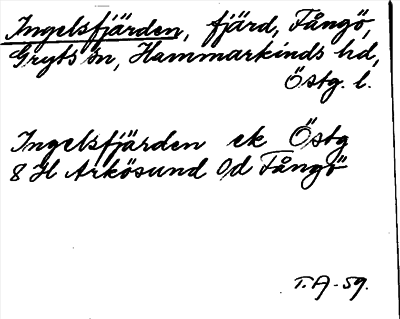 Ingelsfjärden, fjärd, Fångö,
Gryts sn, Hammarkinds hd,
Östg. l.
Ingelsfjärden ek Östg
8 H Arkösund Od Fångö
T.A-59.